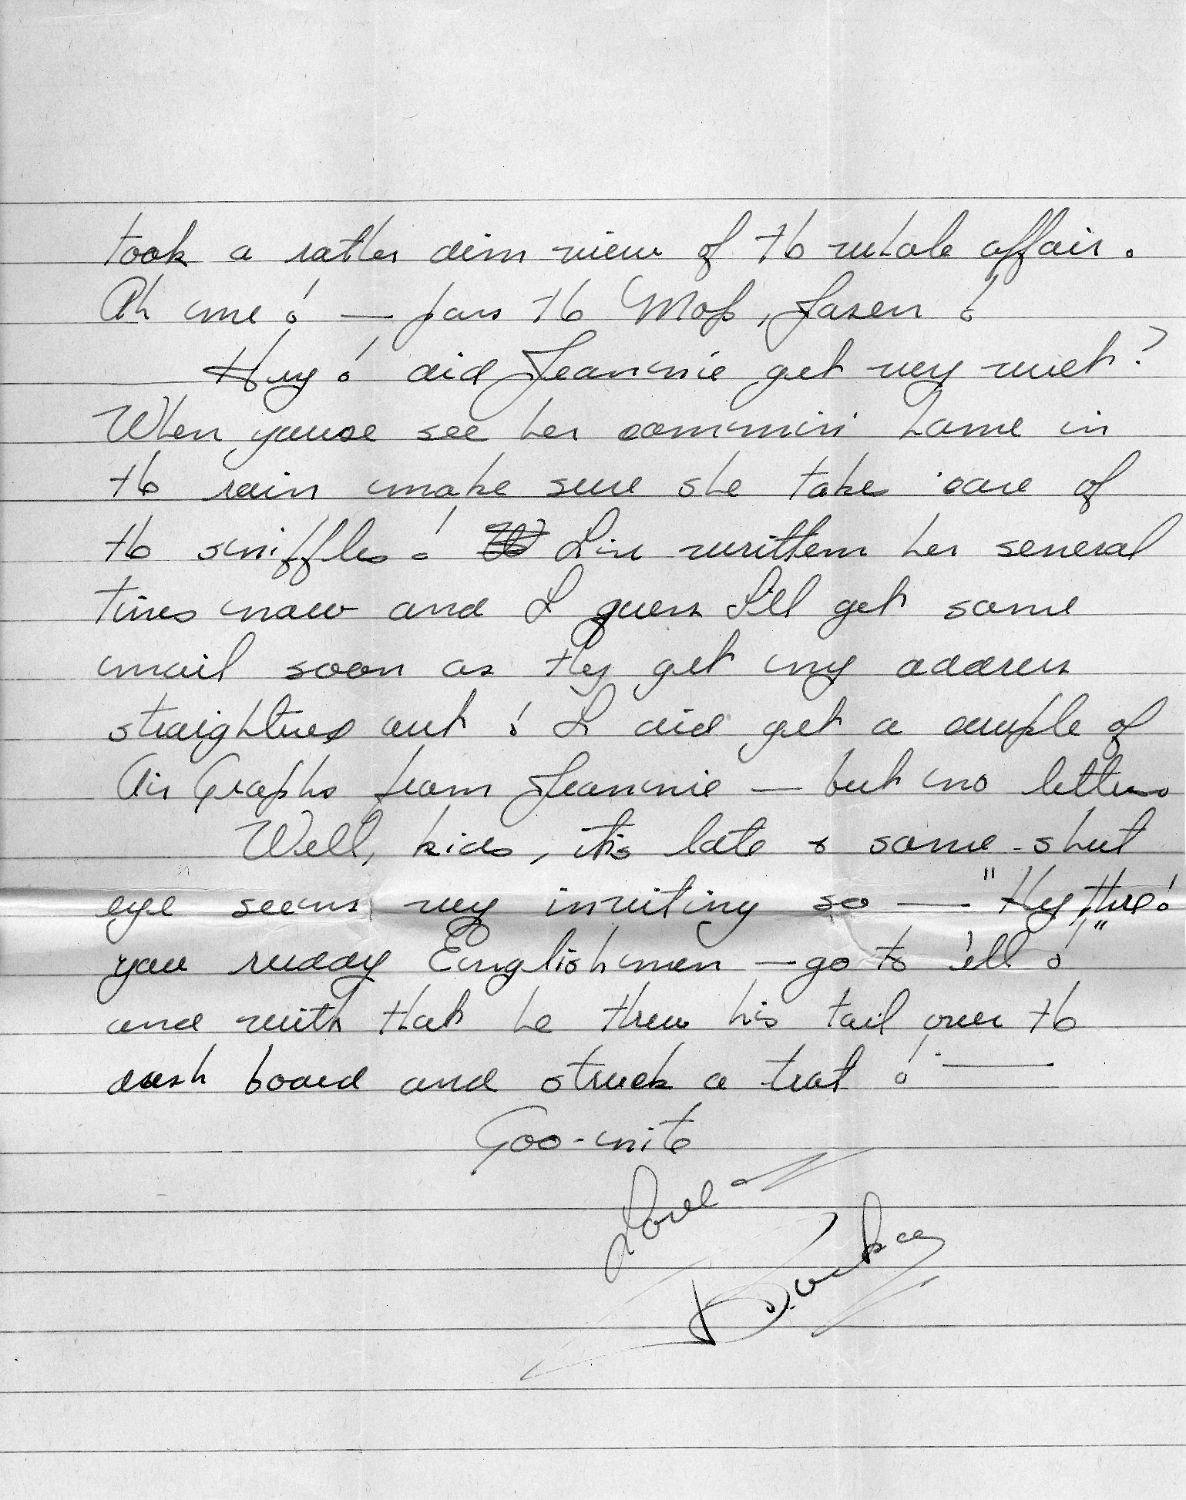 took a rather dim view of the whole affair.
Ah me! — pass the Mop, Jasen!
Hey! did Jeannie get very wet?
When youse see her commin' home in
the rain make sure she take care of
the sniffles! I've written her several
times now and I guess I'll get some
mail soon as they get my address
straightened out! I did get a couple of
Air Graphs from Jeannie — but no letters
Well, kids, it's late & some shut
eye seems very inviting so — "Hey there!
you ruddy Englishmen — go to 'ell!"
and with that he threw his tail over the
dash board and struck a trot! —
Goo-nite
Love